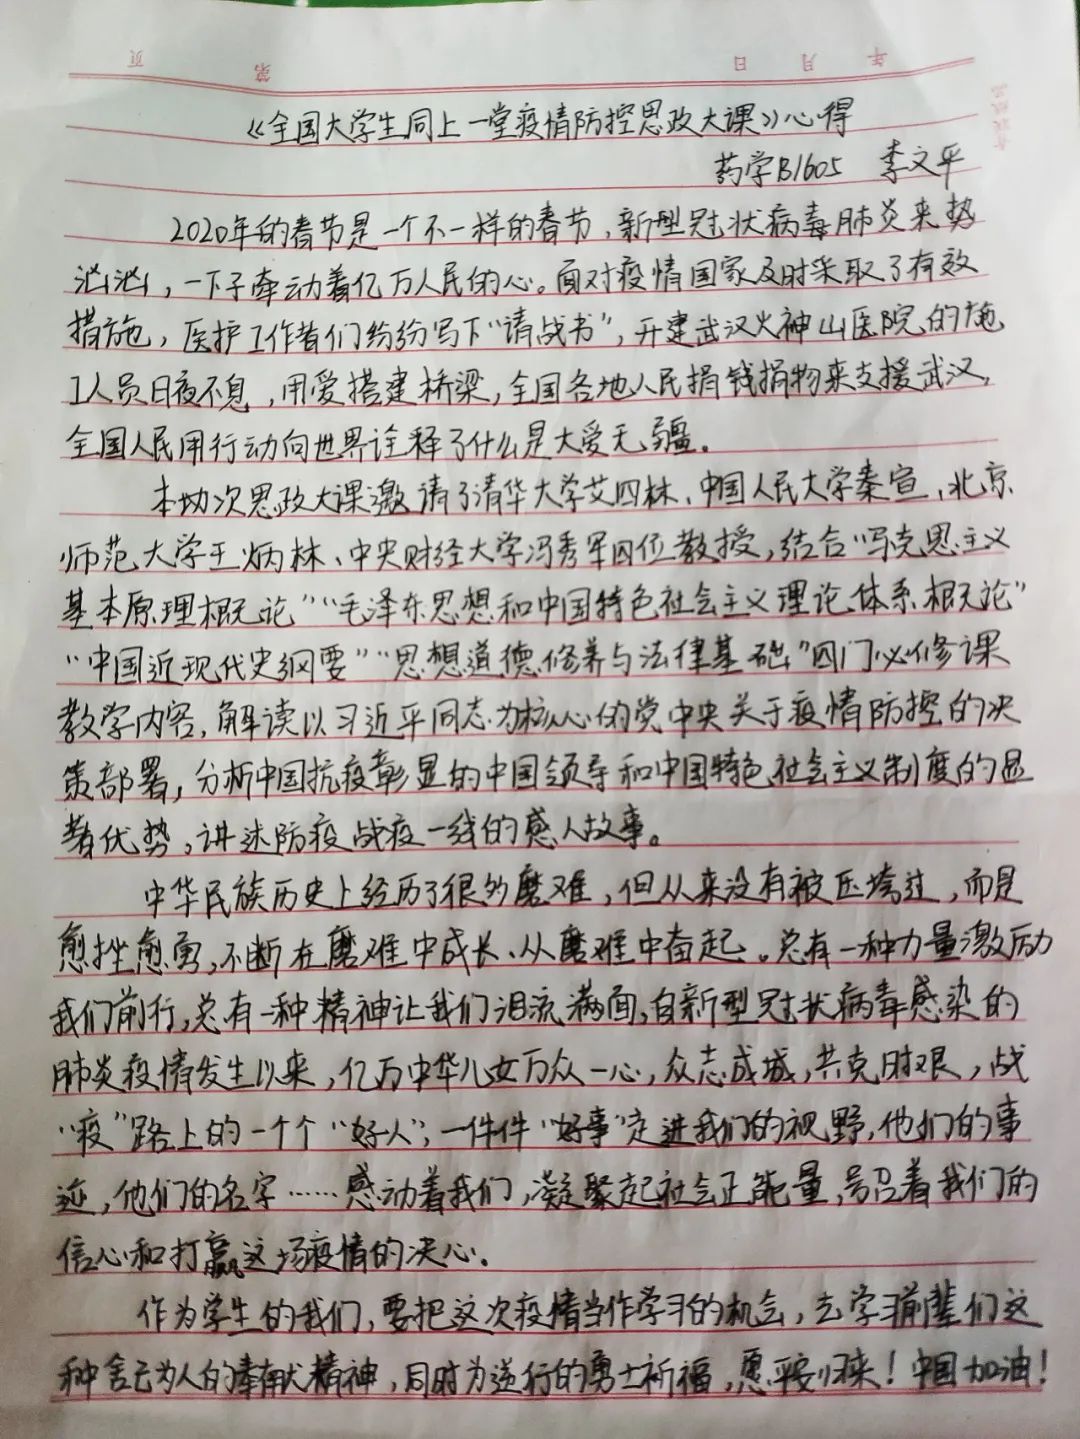 页 第 日 月 年
《全国大学生同上一堂疫情防控思政大课》心得
药学B1605 李文平
2020年的春节是一个不一样的春节，新型冠状病毒肺炎来势
汹汹，一下子牵动着亿万人民的心。面对疫情国家及时采取了有效
措施，医护工作者们纷纷写下“请战书”，开建武汉火神山医院的施
工人员日夜不息，用爱搭建桥梁，全国各地人民捐钱捐物来支援武汉，
全国人民用行动向世界诠释了什么是大爱无疆。
本次思政大课邀请了清华大学艾四林、中国人民大学秦宣、北京
师范大学王炳林、中央财经大学冯秀军四位教授，结合“马克思主义
基本原理概论”“毛泽东思想和中国特色社会主义理论体系概论”
“中国近现代史纲要”“思想道德修养与法律基础”四门必修课
教学内容，解读以习近平同志为核心的党中央关于疫情防控的决
策部署，分析中国抗疫彰显的中国领导和中国特色社会主义制度的显
著优势，讲述防疫战疫一线的感人故事。
中华民族历史上经历了很多磨难，但从来没有被压垮过，而是
愈挫愈勇，不断在磨难中成长、从磨难中奋起。总有一种力量激励
我们前行，总有一种精神让我们泪流满面，自新型冠状病毒感染的
肺炎疫情发生以来，亿万中华儿女万众一心，众志成城，共克时艰，战
“疫”路上的一个个“好人”，一件件“好事”走进我们的视野，他们的事
迹，他们的名字……感动着我们，凝聚起社会正能量，号召着我们的
信心和打赢这场疫情的决心。
作为学生的我们，要把这次疫情当作学习的机会，去学习前辈们这
种舍己为人的奉献精神，同时为逆行的勇士祈福，愿平安归来！中国加油！